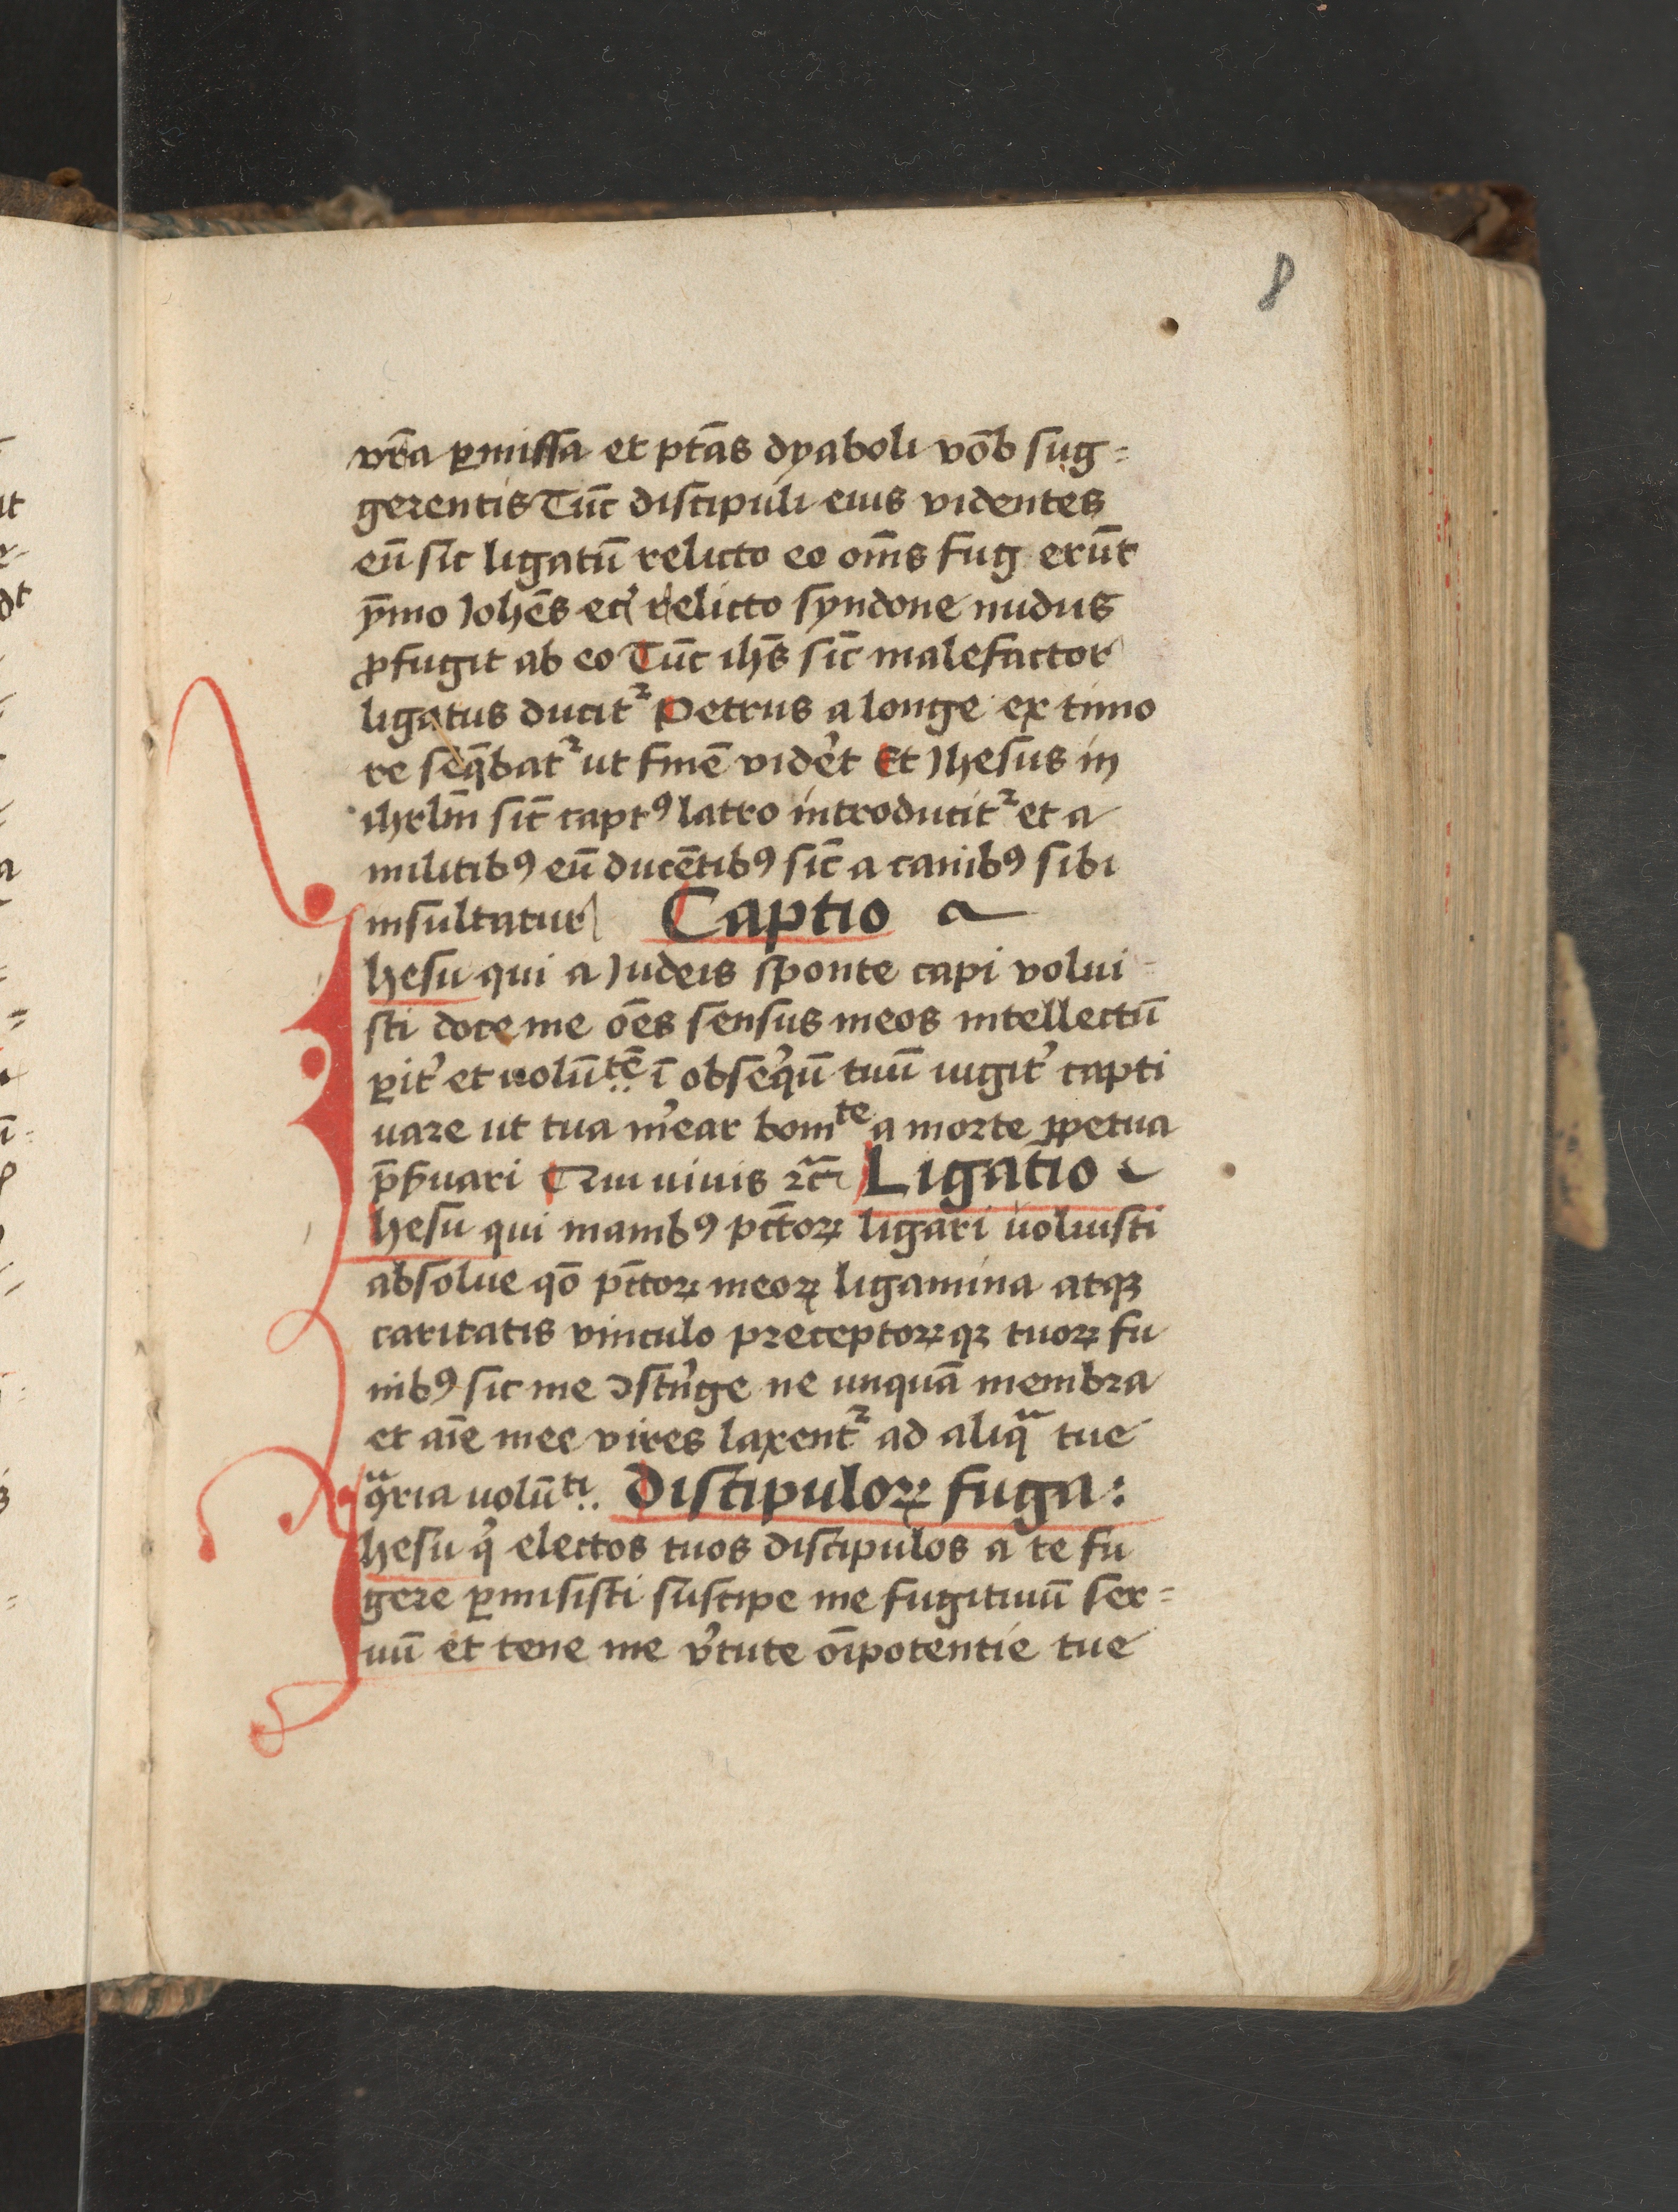 8
vr̄a ꝑmissa et ptās dyaboli vōb sug=
gerentis Tūc discipuli eius videntes
eū sic ligatū relicto eo om̄s fug erūt
p̄mo Johēs eci relicto syndone nudus
ꝓfugit ab eo Tūc ihs̄ sic̄ malefactor
ligatus ducit᷑ Petrus a longe ex timo
re seq̄bat᷑ ut finē vider̉t Et Jhesus in
ihrlm̄ sic̄ capt⁹ latro introducit᷑ et a
militib⁹ eū ducētib⁹ sic̄ a canib⁹ sibi
insultatur Captio
Jhesu qui a Judeis sponte capi volui-
sti doce me oēs sensus meos intellectū
ꝑit̉ et uolūtē ī obseq̉ū tuū iugit̉ capti
uare ut tua m̉ear bonite a morte ꝑpetua
p̄ẜuari Qui uiuis ⁊c̄ Ligatio
Jhesu qui manib⁹ pct̄oꝝ ligari uoluisti
absolue qō pc̄toꝝ meoꝝ ligamina atqꝫ
caritatis vinculo preceptoꝝqꝫ tuoꝝ fu
nib⁹ sic me ↄstri̇ge ne unquā membra
et aīe mee vires laxent᷑ ad aliqᷓ tue
ꝯᷓria uolūti Discipuloꝝ fuga:
Jhesu q̇ electos tuos discipulos a te fu
gere ꝑmisisti suscipe me fugitiuū ser=
uū et tene me v̉tute oīpotentie tue